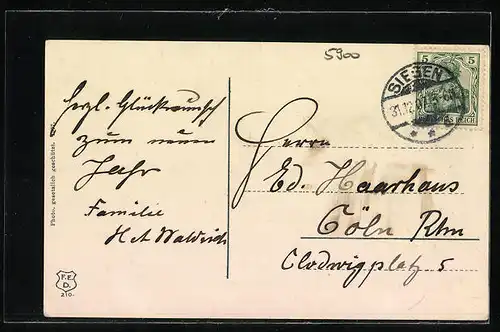 5900
5 5
SIEGEN
31.12.
REICH
Herzl. Glückwunsch
zum neuen
Jahr
Familie
Herrn
Ed. Haarhaus
Cöln Rhn
Clodwigplatz 5
Photo. gesetzlich geschützt.
F.E.
D.
210.